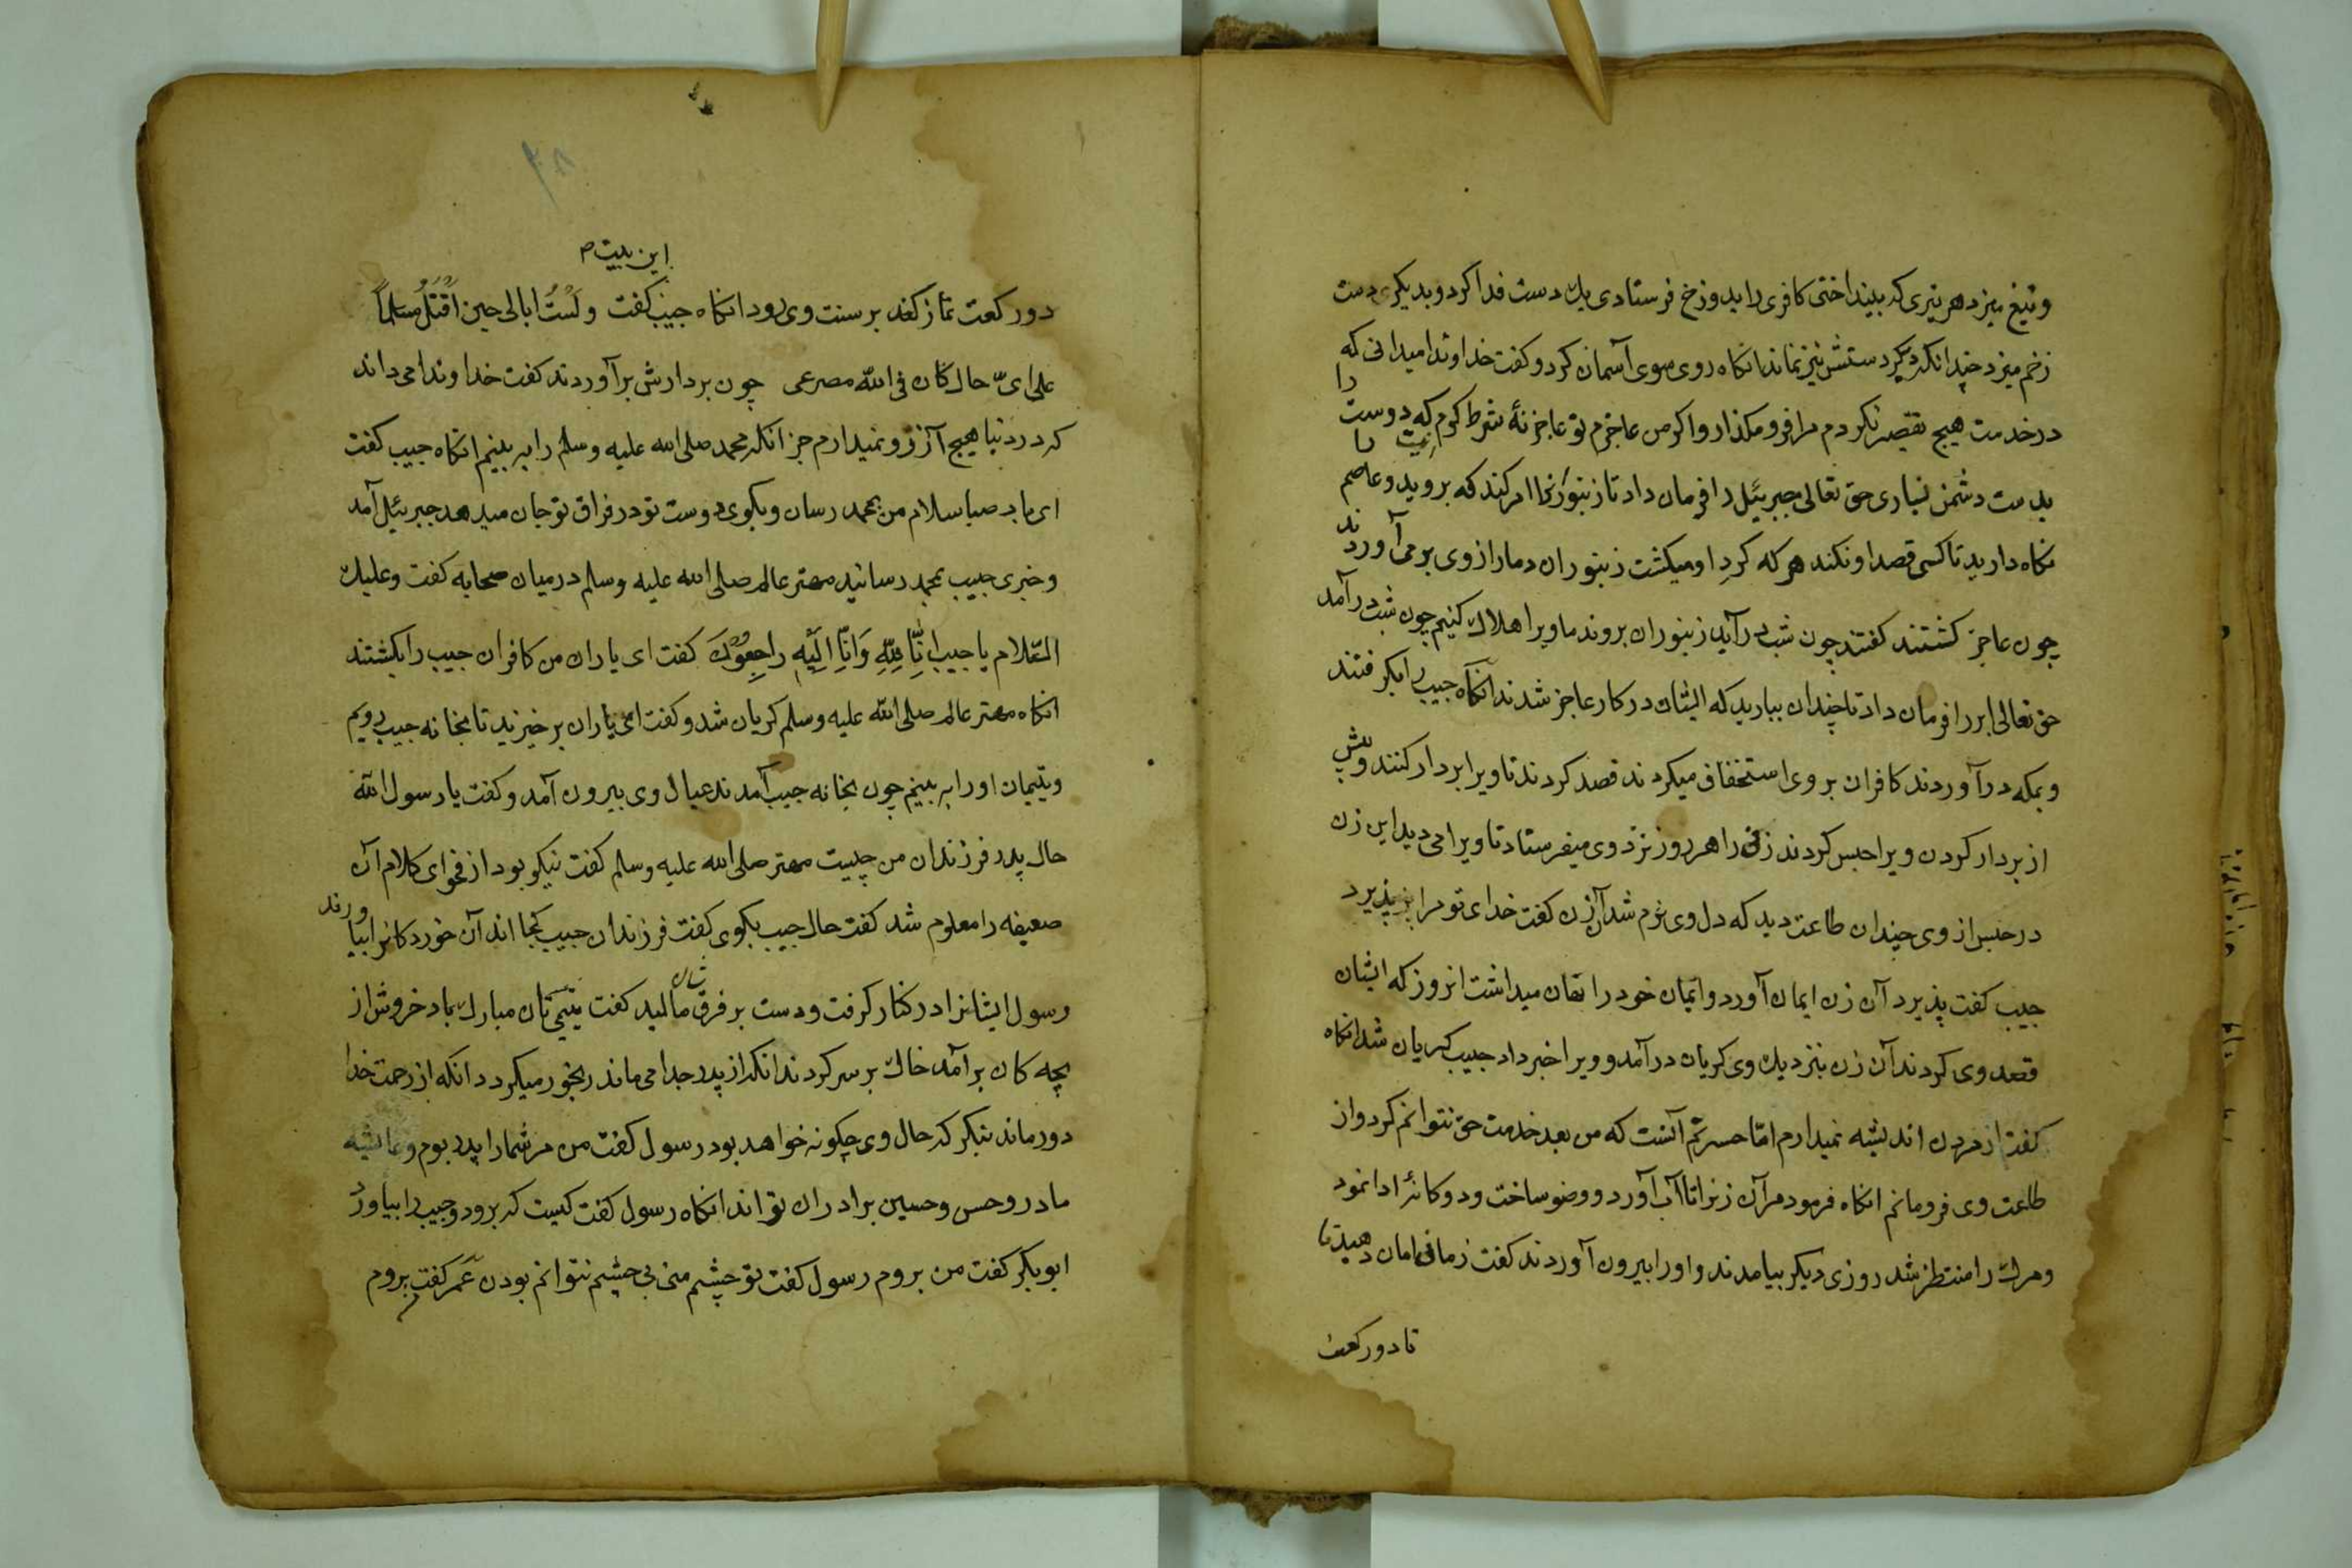 وتیغ میزد هر تیری که بینداختی کافری را بدوزخ فرستادی یک دست فدا کرد و بدیکری دست
زخم میزد چندانکه دیکر دستش نیز نماند انکاه روی سوی آسمان کرد و کفت خداوندا میدانی که
در خدمت هیچ تقصیر نکردم مرا فرو مکذار و اکر من عاجزم تو عاجز نهٔ شرط کرم که دوست را
بدست دشمن نسپاری حق تعالی جبرئیل را فرمان داد تا زنبورانرا امر کند که بروید و عاصم را
نکاه دارید تا کسی قصد او نکند هر که کرد او میکشت زنبوران دمار از وی برمی آوردند
چون عاجز کشتند کفتند چون شب در آید زنبوران بروند ما ویرا هلاک کنیم چون شب در آمد
حق تعالی ابر را فرمان داد تا چندان ببارید که ایشان در کار عاجز شدند انکاه حبیب را بکرفتند
و بمکه در آوردند کافران بر وی استخفاف میکردند قصد کردند تا ویرا بر دار کنند و پیش
از بردار کردن ویرا حبس کردند زنی را هر روز نزد وی میفرستاد تا ویرا می دید این زن
در حبس از وی چندان طاعت دید که دل وی نرم شد آن زن کفت خدای تو مرا بپذیرد
حبیب کفت پذیرد آن زن ایمان آورد و ایمان خود را نهان میداشت انروز که ایشان
قصد وی کردند آن زن بنزدیک وی کریان در آمد و ویرا خبر داد حبیب کریان شد انکاه
کفت از مردن اندیشه نمیدارم امّا حسرتم آنست که من بعد خدمت حق نتوانم کرد و از
طاعت وی فرومانم انکاه فرمود مر آن زنرا تا آب آورد و وضو ساخت و دوکانه ادا نمود
و مرک را منتظر شد روزی دیکر بیامدند و او را بیرون آوردند کفت زمانی امان دهید تا
تا دو رکعت
این بیت
دو رکعت نماز کند بر سنت وی رود انکاه حبیب کفت وَلَسْتُ ابالی حین اُقْتَلُ مسلماً
علی ایّ حال کان فی الله مصرعی چون بر دارش بر آوردند کفت خداوندا می داند
که در دنیا هیچ آرزو نمیدارم جز انکه محمد صلی الله علیه وسلم را به بینم انکاه حبیب کفت
ای باد صبا سلام من بمحمد رسان و بکوی دوست تو در فراق تو جان میدهد جبرئیل آمد
و خبری حبیب بمحمد رسانید مهتر عالم صلی الله علیه وسلم در میان صحابه کفت و علیک
السّلام یا حبیب اِنَّا لِلّٰهِ وَاِنَّا اِلَیْهِ راجِعُوْنَ کفت ای یاران من کافران حبیب را بکشتند
انکاه مهتر عالم صلی الله علیه وسلم کریان شد و کفت ای یاران برخیزید تا بخانه حبیب رویم
و یتیمان او را به بینیم چون بخانه حبیب آمدند عیال وی بیرون آمد و کفت یا رسول الله
حال پدر فرزندان من چیست مهتر صلی الله علیه وسلم کفت نیکو بود از فحوای کلام آن
ضعیفه را معلوم شد کفت حال حبیب بکوی کفت فرزندان حبیب کجا اند آن خوردکانرا بیاورند
رسول ایشانرا در کنار کرفت و دست بر فرق شان مالید کفت یتیمی تان مبارک باد خروش از
بچه کان بر آمد خاک بر سر کردند انکه از پدر جدا می ماند رنجور میکردد انکه از رحمت خدا
دور ماند بنکر که حال وی چکونه خواهد بود رسول کفت من مر شما را پدر بوم و عائشه
مادر و حسن و حسین برادران تو اند انکاه رسول کفت کیست که برود و حبیب را بیاورد
ابوبکر کفت من بروم رسول کفت تو چشم منی بی چشم نتوانم بودن عمر کفت بروم